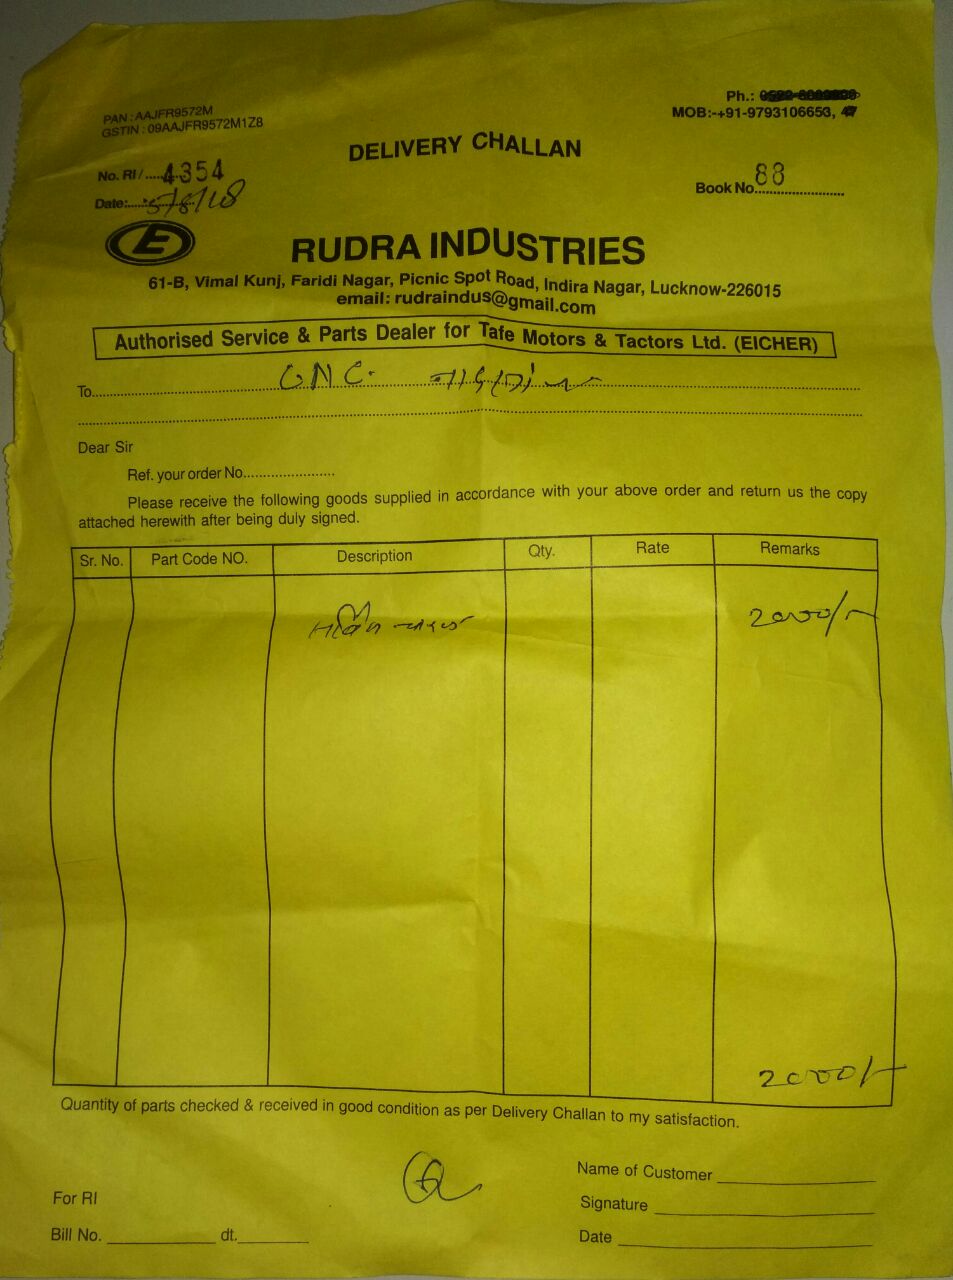 PAN : AAJFR9572M
GSTIN : 09AAJFR9572M1Z8
Ph.:
MOB:-+91-9793106653, 47
DELIVERY CHALLAN
No. RI/.....4354
Book No. 88
Date: 5/8/18
E
RUDRA INDUSTRIES
61-B, Vimal Kunj, Faridi Nagar, Picnic Spot Road, Indira Nagar, Lucknow-226015
email: rudraindus@gmail.com
Authorised Service & Parts Dealer for Tafe Motors & Tactors Ltd. (EICHER)
To
Dear Sir
Ref. your order No.
Please receive the following goods supplied in accordance with your above order and return us the copy
attached herewith after being duly signed.
Sr. No. Part Code NO. Description Qty. Rate Remarks
2000/-
2000/-
Quantity of parts checked & received in good condition as per Delivery Challan to my satisfaction.
Name of Customer
For RI
Signature
Bill No. dt.
Date